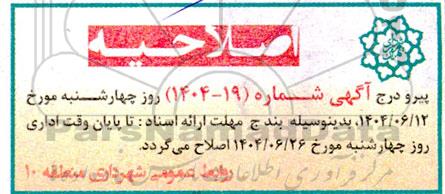 اصلاحیه
پیرو درج آگهی شماره (۱۹-۱۴۰۴) روز چهارشنبه مورخ
۱۴۰۴/۰۶/۱۲، بدینوسیله بند ج مهلت ارائه اسناد : تا پایان وقت اداری
روز چهارشنبه مورخ ۱۴۰۴/۰۶/۲۶ اصلاح می‌گردد.
روابط عمومی شهرداری منطقه ۱۰
ParsNamadData